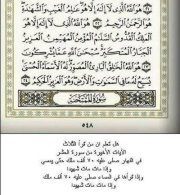 هُوَ ٱللَّهُ ٱلَّذِى لَآ إِلَٰهَ إِلَّا هُوَ عَٰلِمُ ٱلْغَيْبِ وَٱلشَّهَٰدَةِ
هُوَ ٱلرَّحْمَٰنُ ٱلرَّحِيمُ ۝٢٢ هُوَ ٱللَّهُ ٱلَّذِى لَآ إِلَٰهَ إِلَّا هُوَ
ٱلْمَلِكُ ٱلْقُدُّوسُ ٱلسَّلَٰمُ ٱلْمُؤْمِنُ ٱلْمُهَيْمِنُ ٱلْعَزِيزُ
ٱلْجَبَّارُ ٱلْمُتَكَبِّرُ سُبْحَٰنَ ٱللَّهِ عَمَّا يُشْرِكُونَ ۝٢٣
هُوَ ٱللَّهُ ٱلْخَٰلِقُ ٱلْبَارِئُ ٱلْمُصَوِّرُ لَهُ ٱلْأَسْمَآءُ ٱلْحُسْنَىٰ
يُسَبِّحُ لَهُۥ مَا فِى ٱلسَّمَٰوَٰتِ وَٱلْأَرْضِ وَهُوَ ٱلْعَزِيزُ ٱلْحَكِيمُ ۝٢٤
سُورَةُ ٱلْمُمْتَحَنَةِ
٥٤٨
هل تعلم ان من قرأ الثلاث
الآيات الأخيرة من سورة الحشر
في النهار صلى عليه ٧٠ ألف ملك حتى يمسي
وإذا مات مات شهيدا
وإذا قرأها في المساء صلى عليه ٧٠ ألف ملك
وإذا مات مات شهيدا